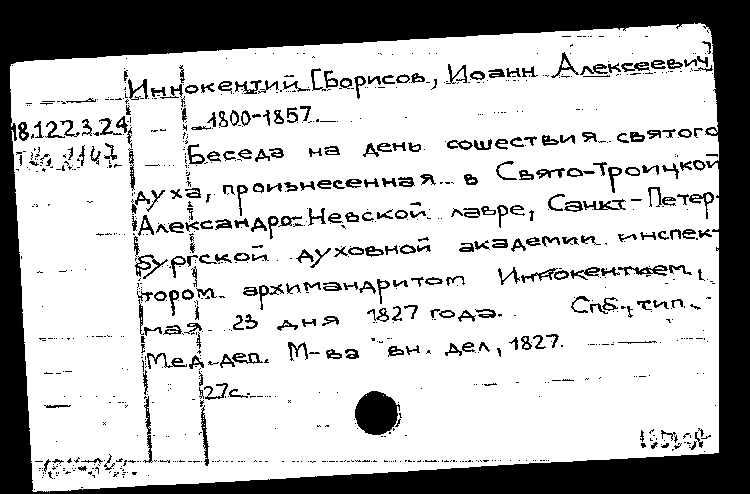 Иннокентий [Борисов, Иоанн Алексеевич]
18.122.3.24 1800-1857.
Беседа на день сошествия святого
духа, произнесенная в Свято-Троицкой
Александро-Невской лавре, Санкт-Петер-
бургской духовной академии инспек-
тором архимандритом Иннокентием,
мая 23 дня 1827 года. Спб., тип.
Мед. деп. М-ва вн. дел, 1827.
27с.